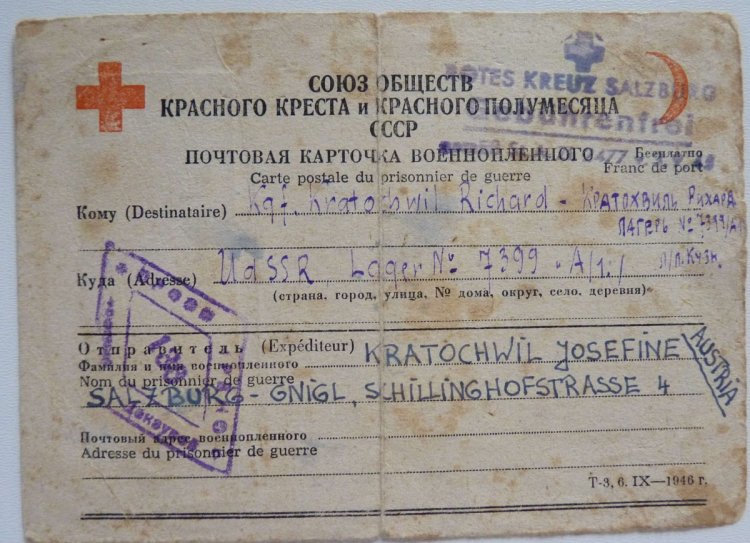 СОЮЗ ОБЩЕСТВ
КРАСНОГО КРЕСТА и КРАСНОГО ПОЛУМЕСЯЦА
СССР
ROTES KREUZ SALZBURG
Gebührenfrei
ПОЧТОВАЯ КАРТОЧКА ВОЕННОПЛЕННОГО
Carte postale du prisonnier de guerre
Бесплатно
Franc de port
Кому (Destinataire) Kgf. Kratochwil Richard - Кратохвиль Рихард
Лагерь № 7399/А
Куда (Adresse) UdSSR Lager № 7399 - A/1:/
(страна, город, улица, № дома, округ, село, деревня)
Отправитель (Expéditeur) KRATOCHWIL JOSEFINE
AUSTRIA
Фамилия и имя военнопленного
Nom du prisonnier de guerre
SALZBURG - GNIGL, SCHILLINGHOFSTRASSE 4
Почтовый адрес военнопленного
Adresse du prisonnier de guerre
Т-3, 6. IX—1946 г.